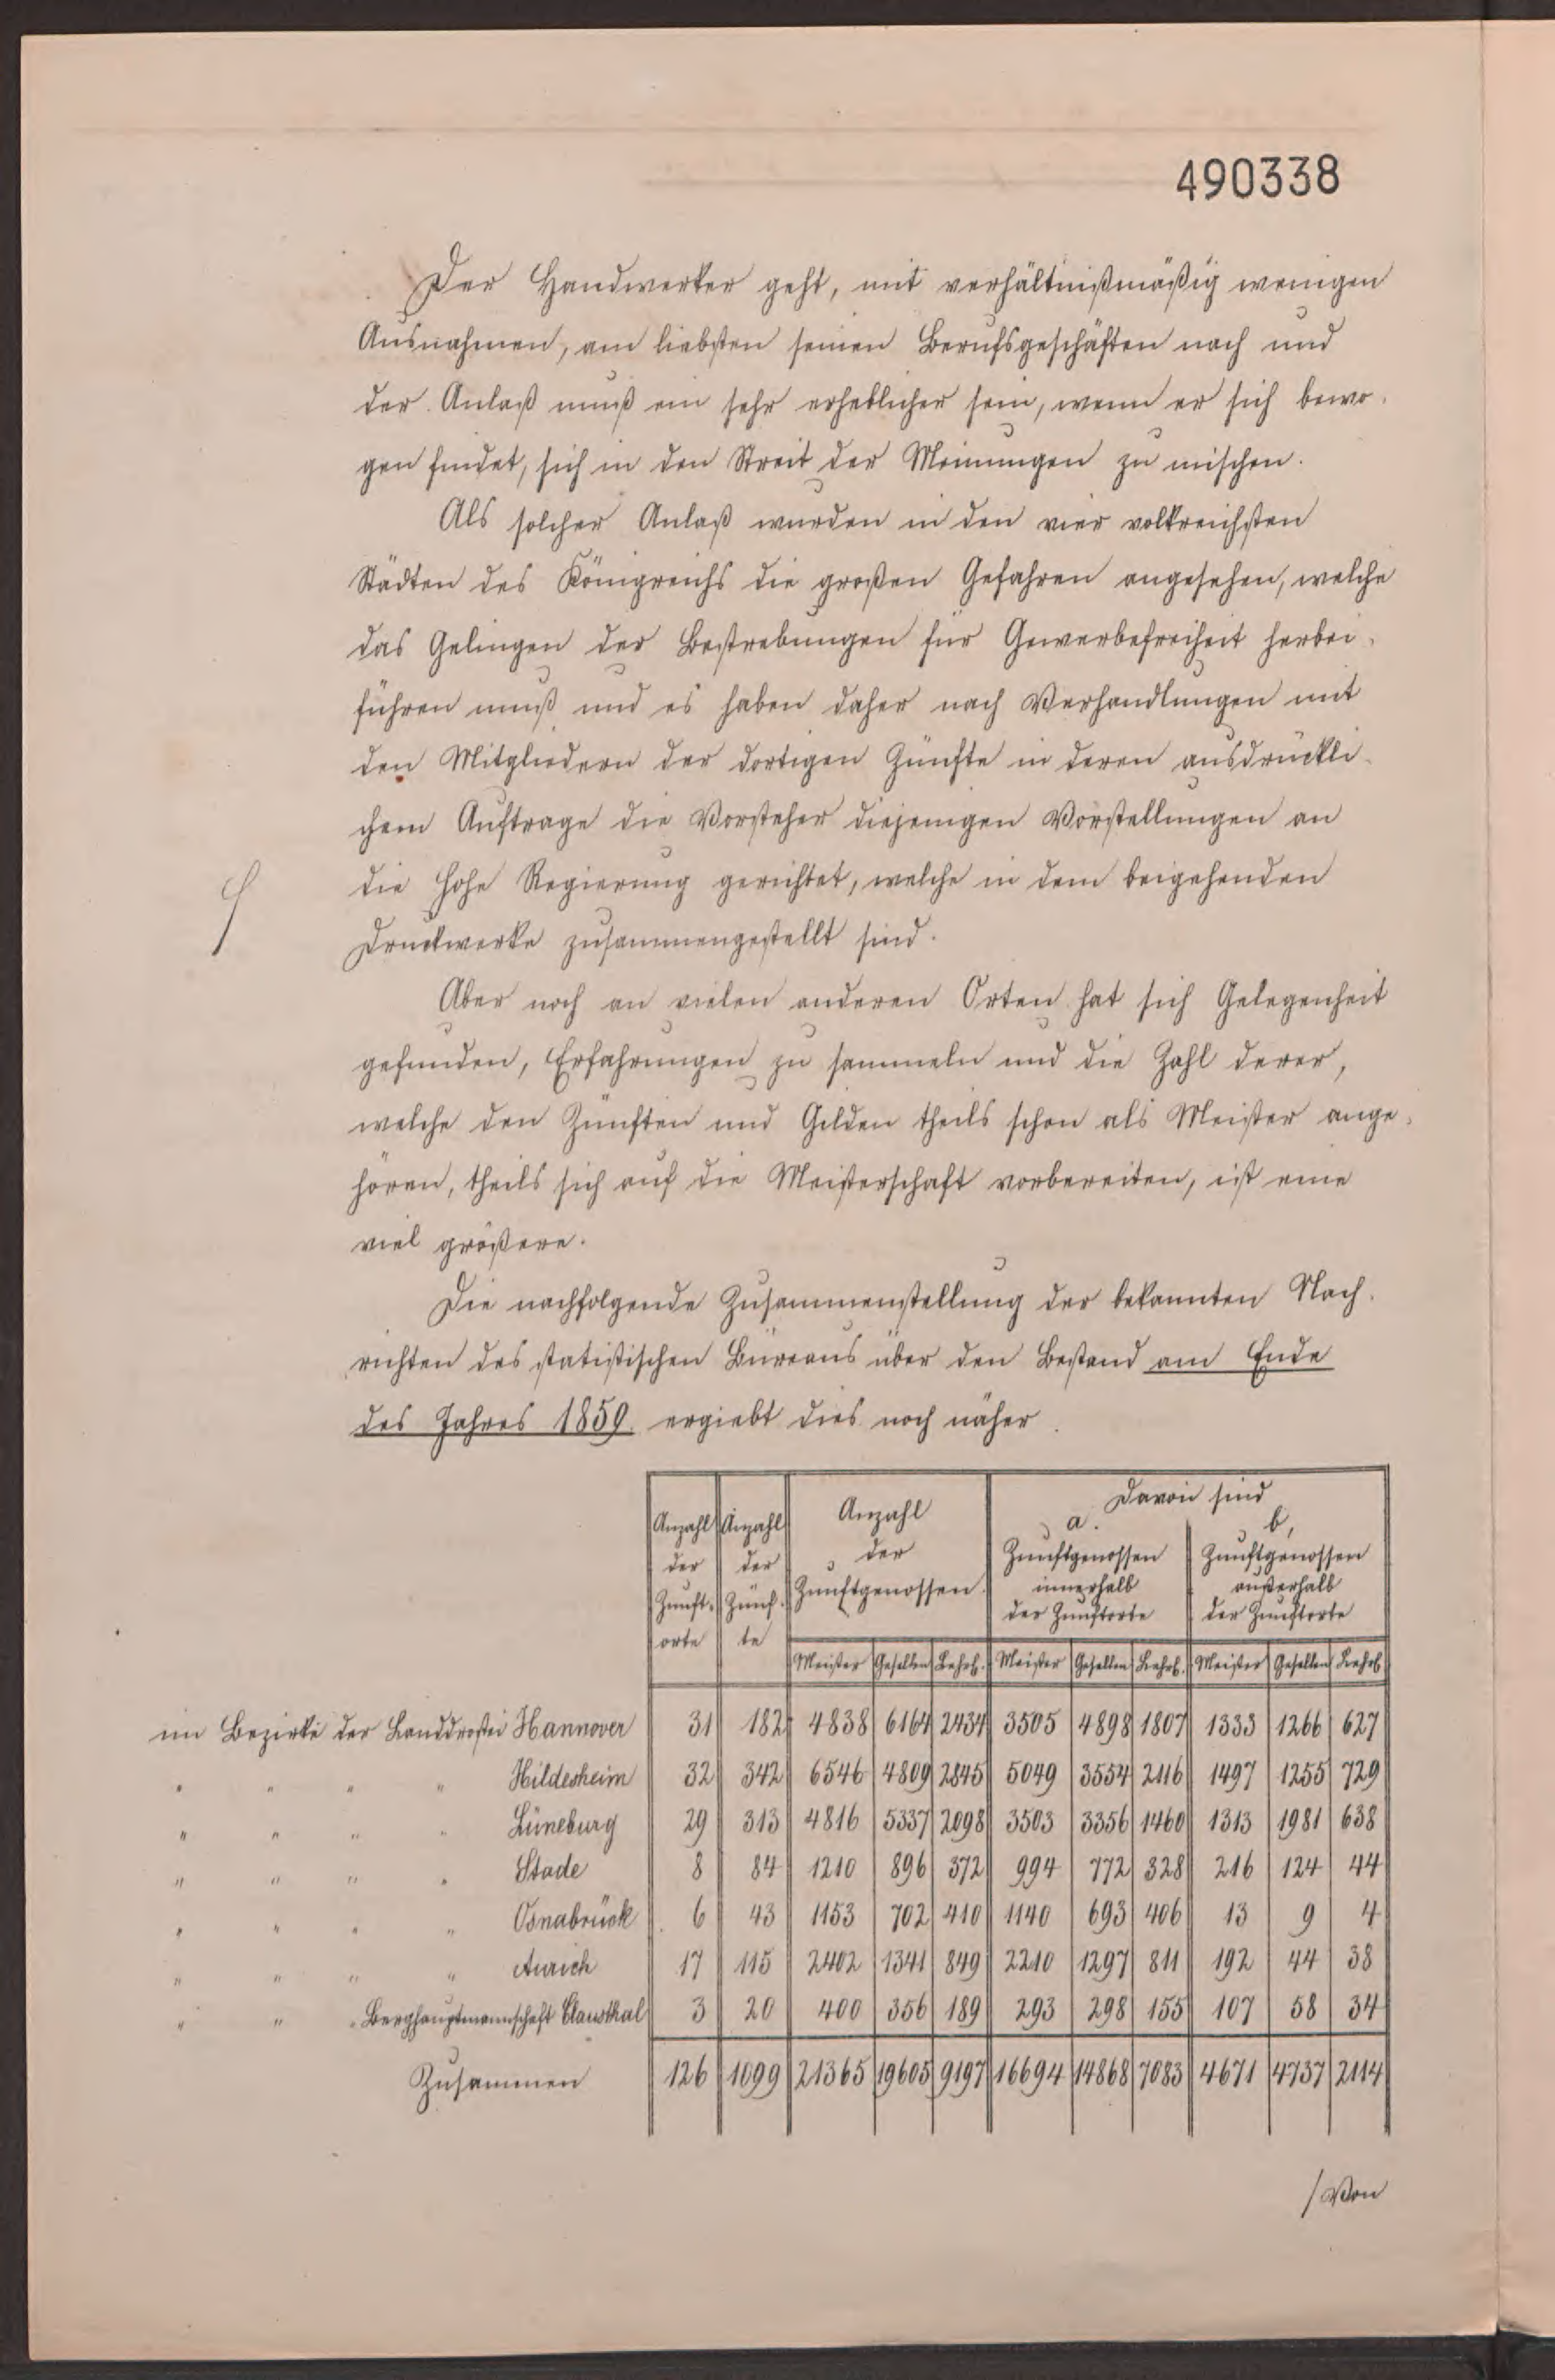 490338
Der Handwerker geht, mit verhältnißmäßig wenigen
Ausnahmen, am liebsten seinen Berufsgeschäften nach und
der Anlaß muß ein sehr erheblicher sein, wenn er sich bewo-
gen findet, sich in den Streit der Meinungen zu mischen.
Als solcher Anlaß wurden in den vier volkreichsten
Städten des Königreichs die großen Gefahren angesehen, welche
das Gelingen der Bestrebungen für Gewerbefreiheit herbei-
führen muß und es haben daher nach Verhandlungen mit
den Mitgliedern der dortigen Zünfte in deren ausdrückli-
chem Auftrage die Vorsteher diejenigen Vorstellungen an
die hohe Regierung gerichtet, welche in dem beigehenden
Druckwerke zusammengestellt sind.
Aber noch an vielen anderen Orten hat sich Gelegenheit
gefunden, Erfahrungen zu sammeln und die Zahl derer,
welche den Zünften und Gilden theils schon als Meister ange-
hören, theils sich auf die Meisterschaft vorbereiten, ist eine
viel größere.
Die nachfolgende Zusammenstellung der bekannten Nach-
richten des statistischen Büreaus über den Bestand am Ende
des Jahres 1859. ergiebt dies noch näher.
Anzahl der Zunft-orte Anzahl der Zünf-te Anzahl der Zunftgenossen Davon sind
a. Zunftgenossen innerhalb der Zunftorte b, Zunftgenossen außerhalb der Zunftorte
Meister Gesellen Lehrl. Meister Gesellen Lehrl. Meister Gesellen Lehrl
im Bezirke der Landdrostei Hannover 31 182 4838 6164 2434 3505 4898 1807 1333 1266 627
" " " " Hildesheim 32 342 6546 4809 2845 5049 3554 2116 1497 1255 729
" " " " Lüneburg 29 313 4816 5337 2098 3503 3356 1460 1313 1981 638
" " " " Stade 8 84 1210 896 372 994 772 328 216 124 44
" " " " Osnabrück 6 43 1153 702 410 1140 693 406 13 9 4
" " " " Aurich 17 115 2402 1341 849 2210 1297 811 192 44 38
" " " Berghauptmannschaft Clausthal 3 20 400 356 189 293 298 155 107 58 34
Zusammen 126 1099 21365 19605 9197 16694 14868 7083 4671 4737 2114
/ Von